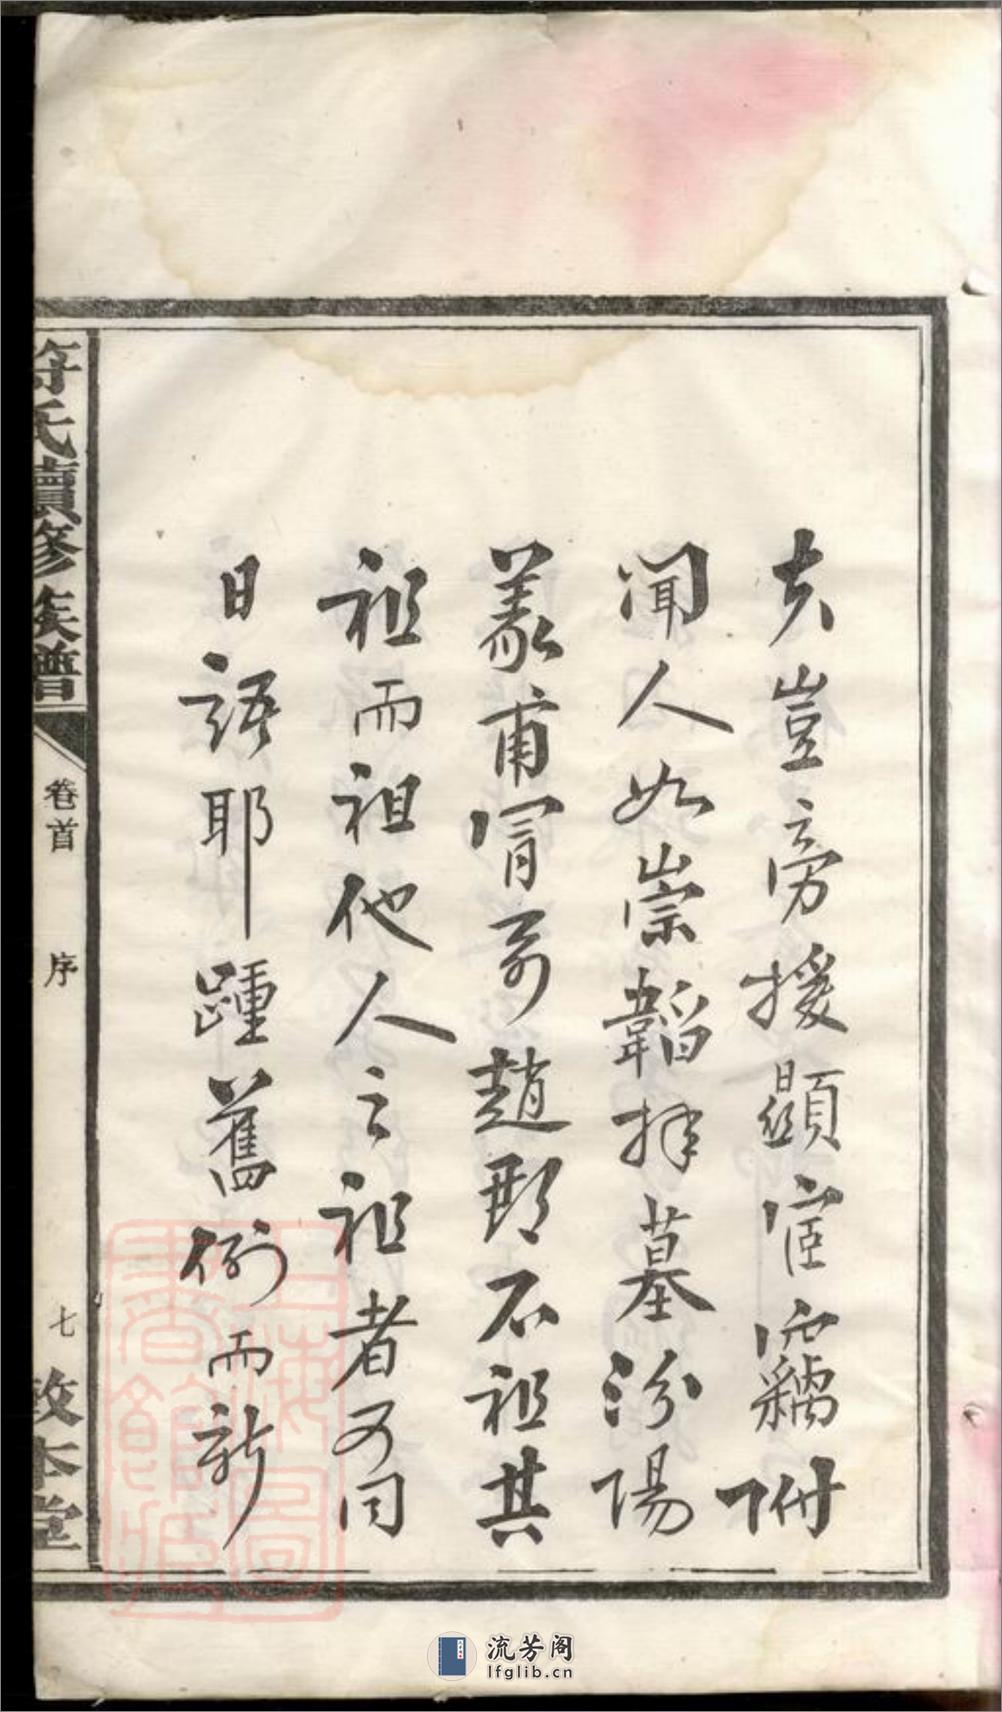 夫豈旁援顯宦竊附
聞人如崇韜拜墓汾陽
義甫冒系趙郡不祖其
祖而祖他人之祖者可同
日語耶踵舊例而新
符氏續修族譜
卷首
序
七
敦本堂
上海圖書館藏
流芳阁
lfglib.cn